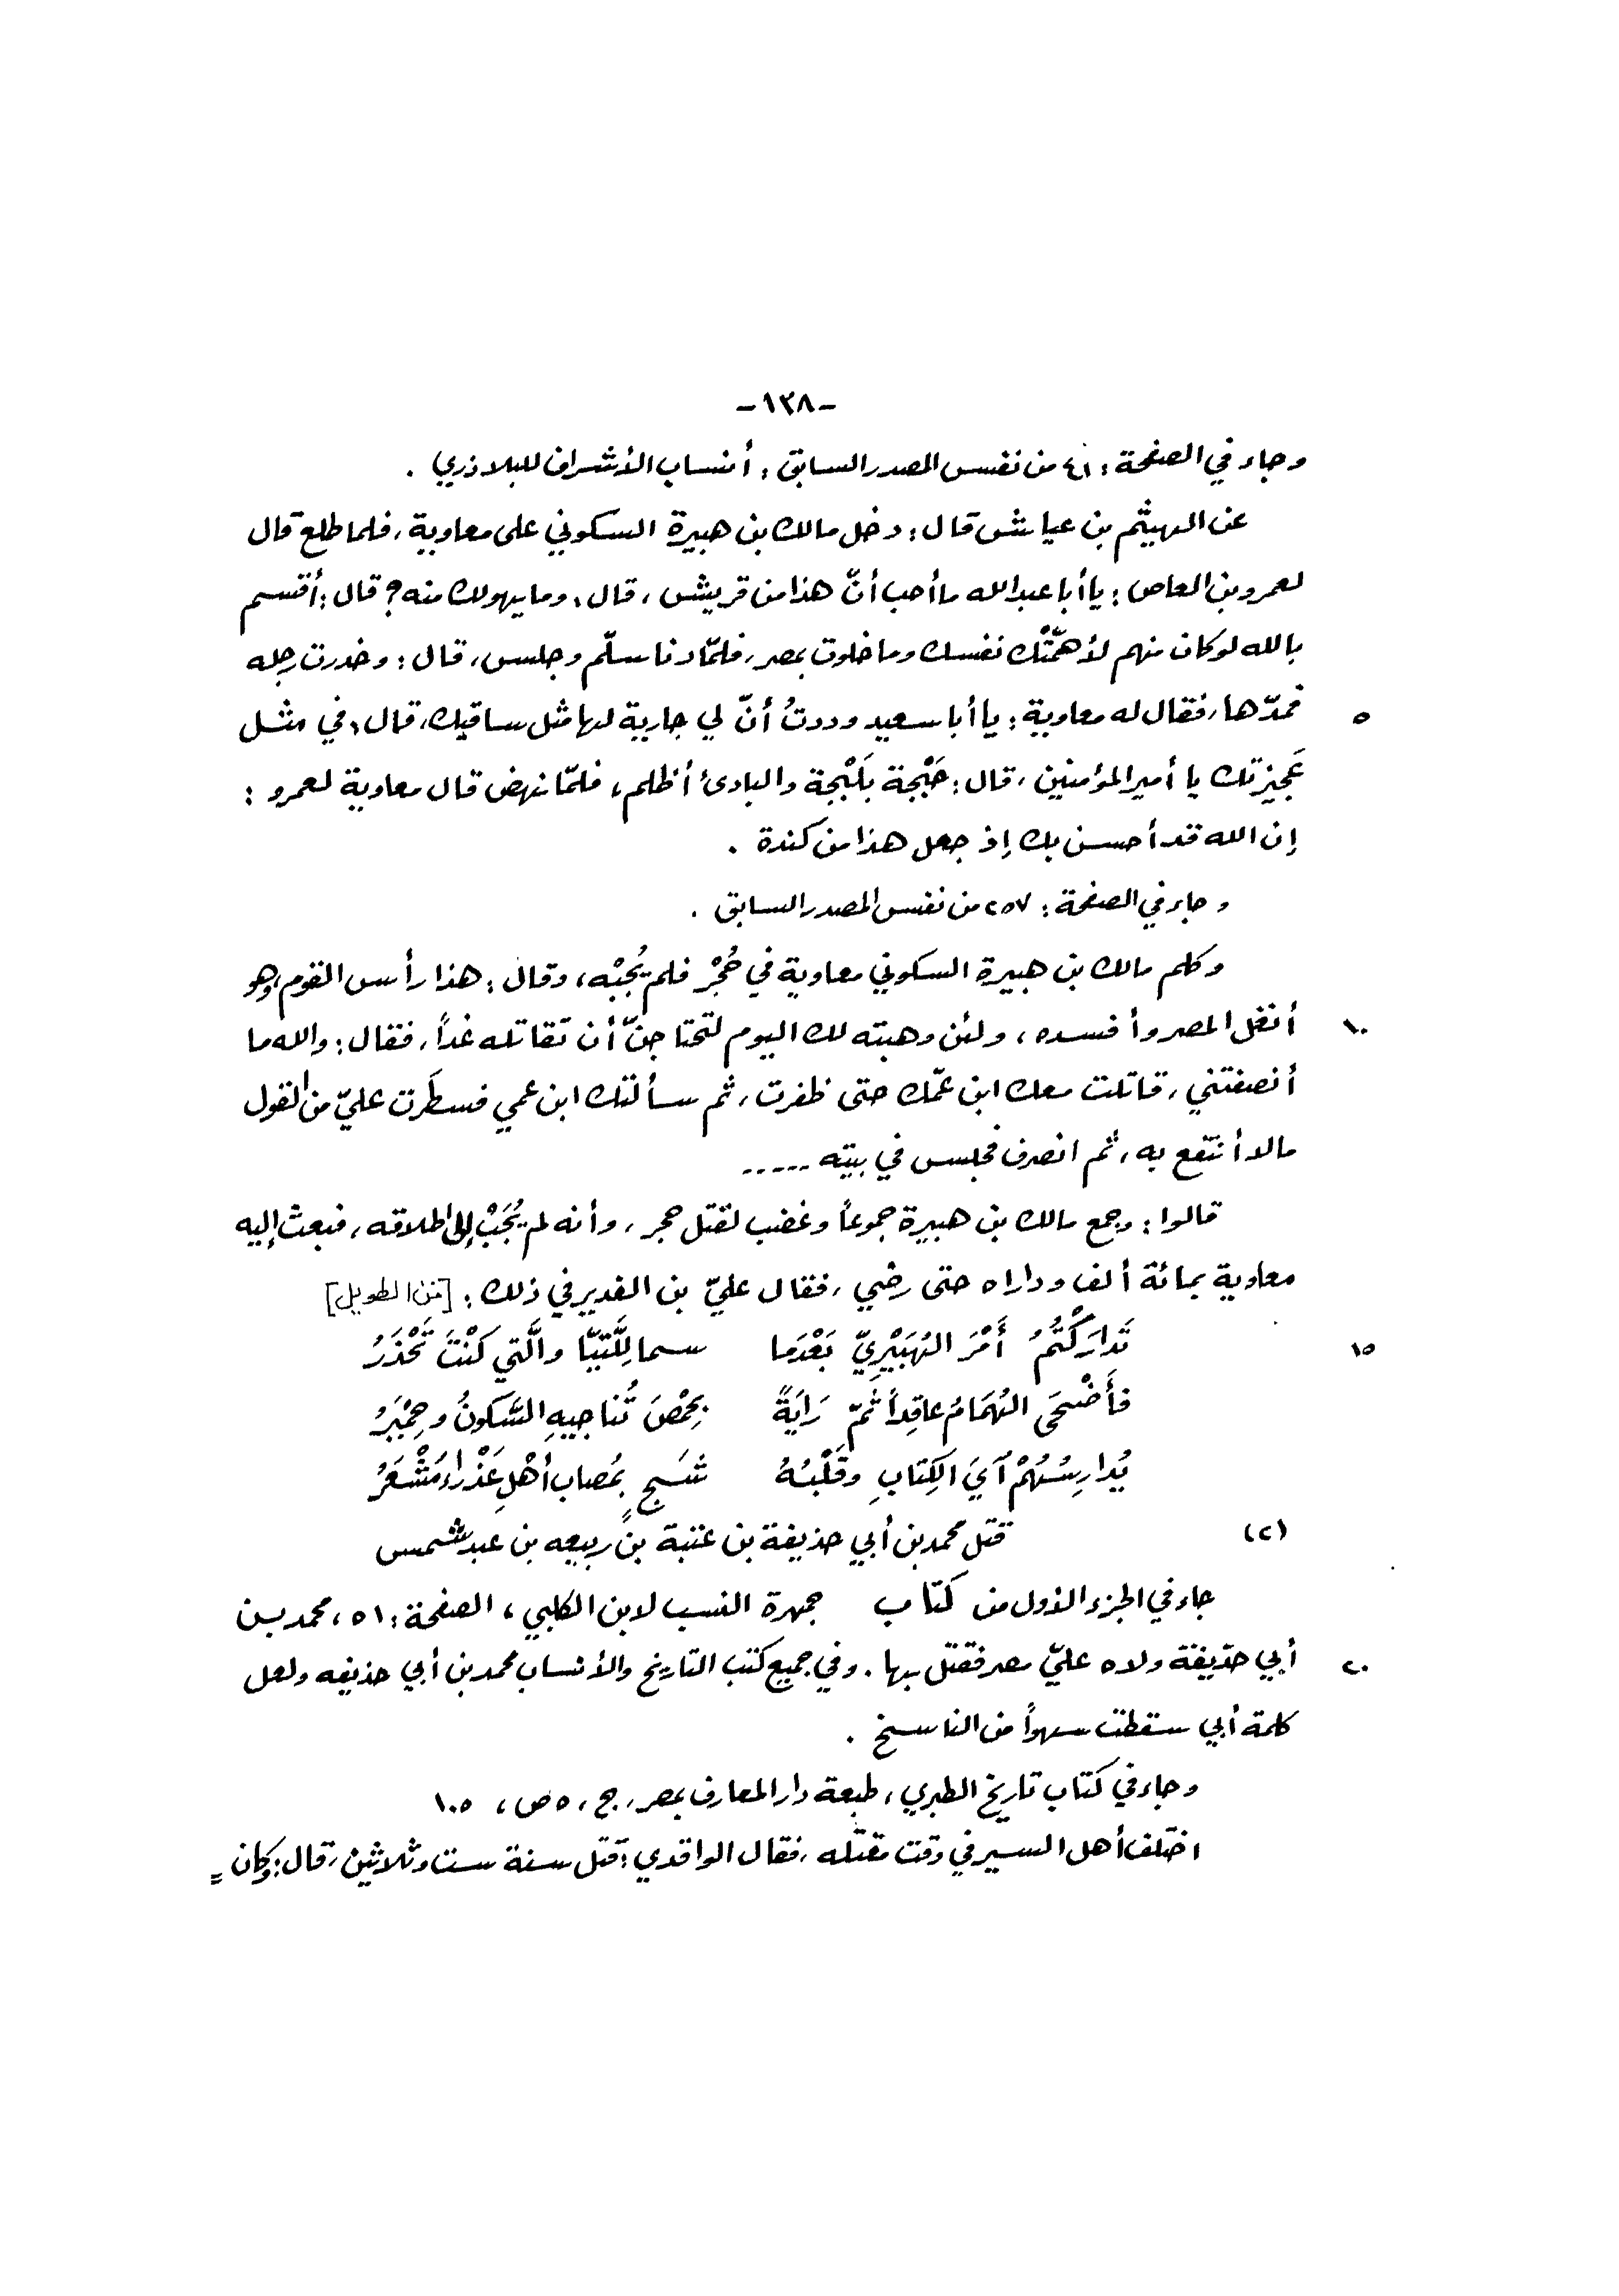 -١٣٨-
وجاء في الصفحة: ٤١ من نفس المصدر السابق: أنساب الأشراف للبلاذري .
عن الهيثم بن عياش قال: دخل مالك بن هبيرة السكوني على معاوية، فلما طلع قال
لعمرو بن العاص: يا أبا عبد الله ما أحب أنّ هذا من قريش، قال: وما يهولك منه؟ قال: أقسم
بالله لو كان منهم لأهمّتْك نفسك وما خلوت بمصر، فلمّا دنا سلّم وجلس، قال: وخدرت رجله
فمدّها، فقال له معاوية: يا أبا سعيد وددتُ أنّ لي جارية لها مثل ساقيك، قال: في مثل ٥
عَجيزتك يا أمير المؤمنين، قال: حَبْجة بَلَبْجة والبادئ أظلم، فلمّا نهض قال معاوية لعمرو :
إن الله قد أحسن بك إذ جعل هذا من كندة .
وجاء في الصفحة: ٢٥٧ من نفس المصدر السابق .
وكلم مالك بن هبيرة السكوني معاوية في حُجْر فلم يُجِبْه، وقال: هذا رأس القوم وهو
أنغل المصر وأفسده، ولئن وهبته لك اليوم لتحتاجنّ أن تقاتله غداً، فقال: والله ما ١٠
أنصفتني، قاتلت معك ابن عمّك حتى ظفرت، ثم سألتك ابن عمي فسطَرت عليّ من القول
مالا أنتفع به، ثم انصرف فجلس في بيته -----
قالوا: وجمع مالك بن هبيرة جموعاً وغضب لقتل حجر، وأنه لم يُجَبْ إلى اطلاقه، فبعث إليه
معاوية بمائة ألف وداراه حتى رضي، فقال عليّ بن الغدير في ذلك: [من الطويل]
تَدارَكْتُمُ أَمْرَ الهُبَيْرِيّ بَعْدَما سما لِلَّتيّا والَّتي كُنْتَ تَحْذَرُ ١٥
فأَضْحَى الهُمَامُ عاقِداً ثَمّ رَايَةً بِحِمْصَ تُناجيهِ السَّكونُ وحِمْيَرُ
يُدارِسُهُمْ آيَ الكِتابِ وقَلْبُهُ شَجٍ بمُصاب أهْلِ عَذْراءَ مُشْعَرُ
(٢) قتل محمد بن أبي حذيفة بن عتبة بن ربيعه بن عبد شمس
جاء في الجزء الأول من كتاب جمهرة النسب لابن الكلبي، الصفحة: ٥١، محمد بن
أبي حذيفة ولاه عليّ مصر فقتل بها. وفي جميع كتب التاريخ والأنساب محمد بن أبي حذيفه ولعل ٢٠
كلمة أبي سقطت سهواً من الناسخ .
وجاء في كتاب تاريخ الطبري، طبعة دار المعارف بمصر، ج، ٥ ص، ١٠٥
اختلف أهل السير في وقت مقتله، فقال الواقدي: قتل سنة ست وثلاثين، قال: وكان =